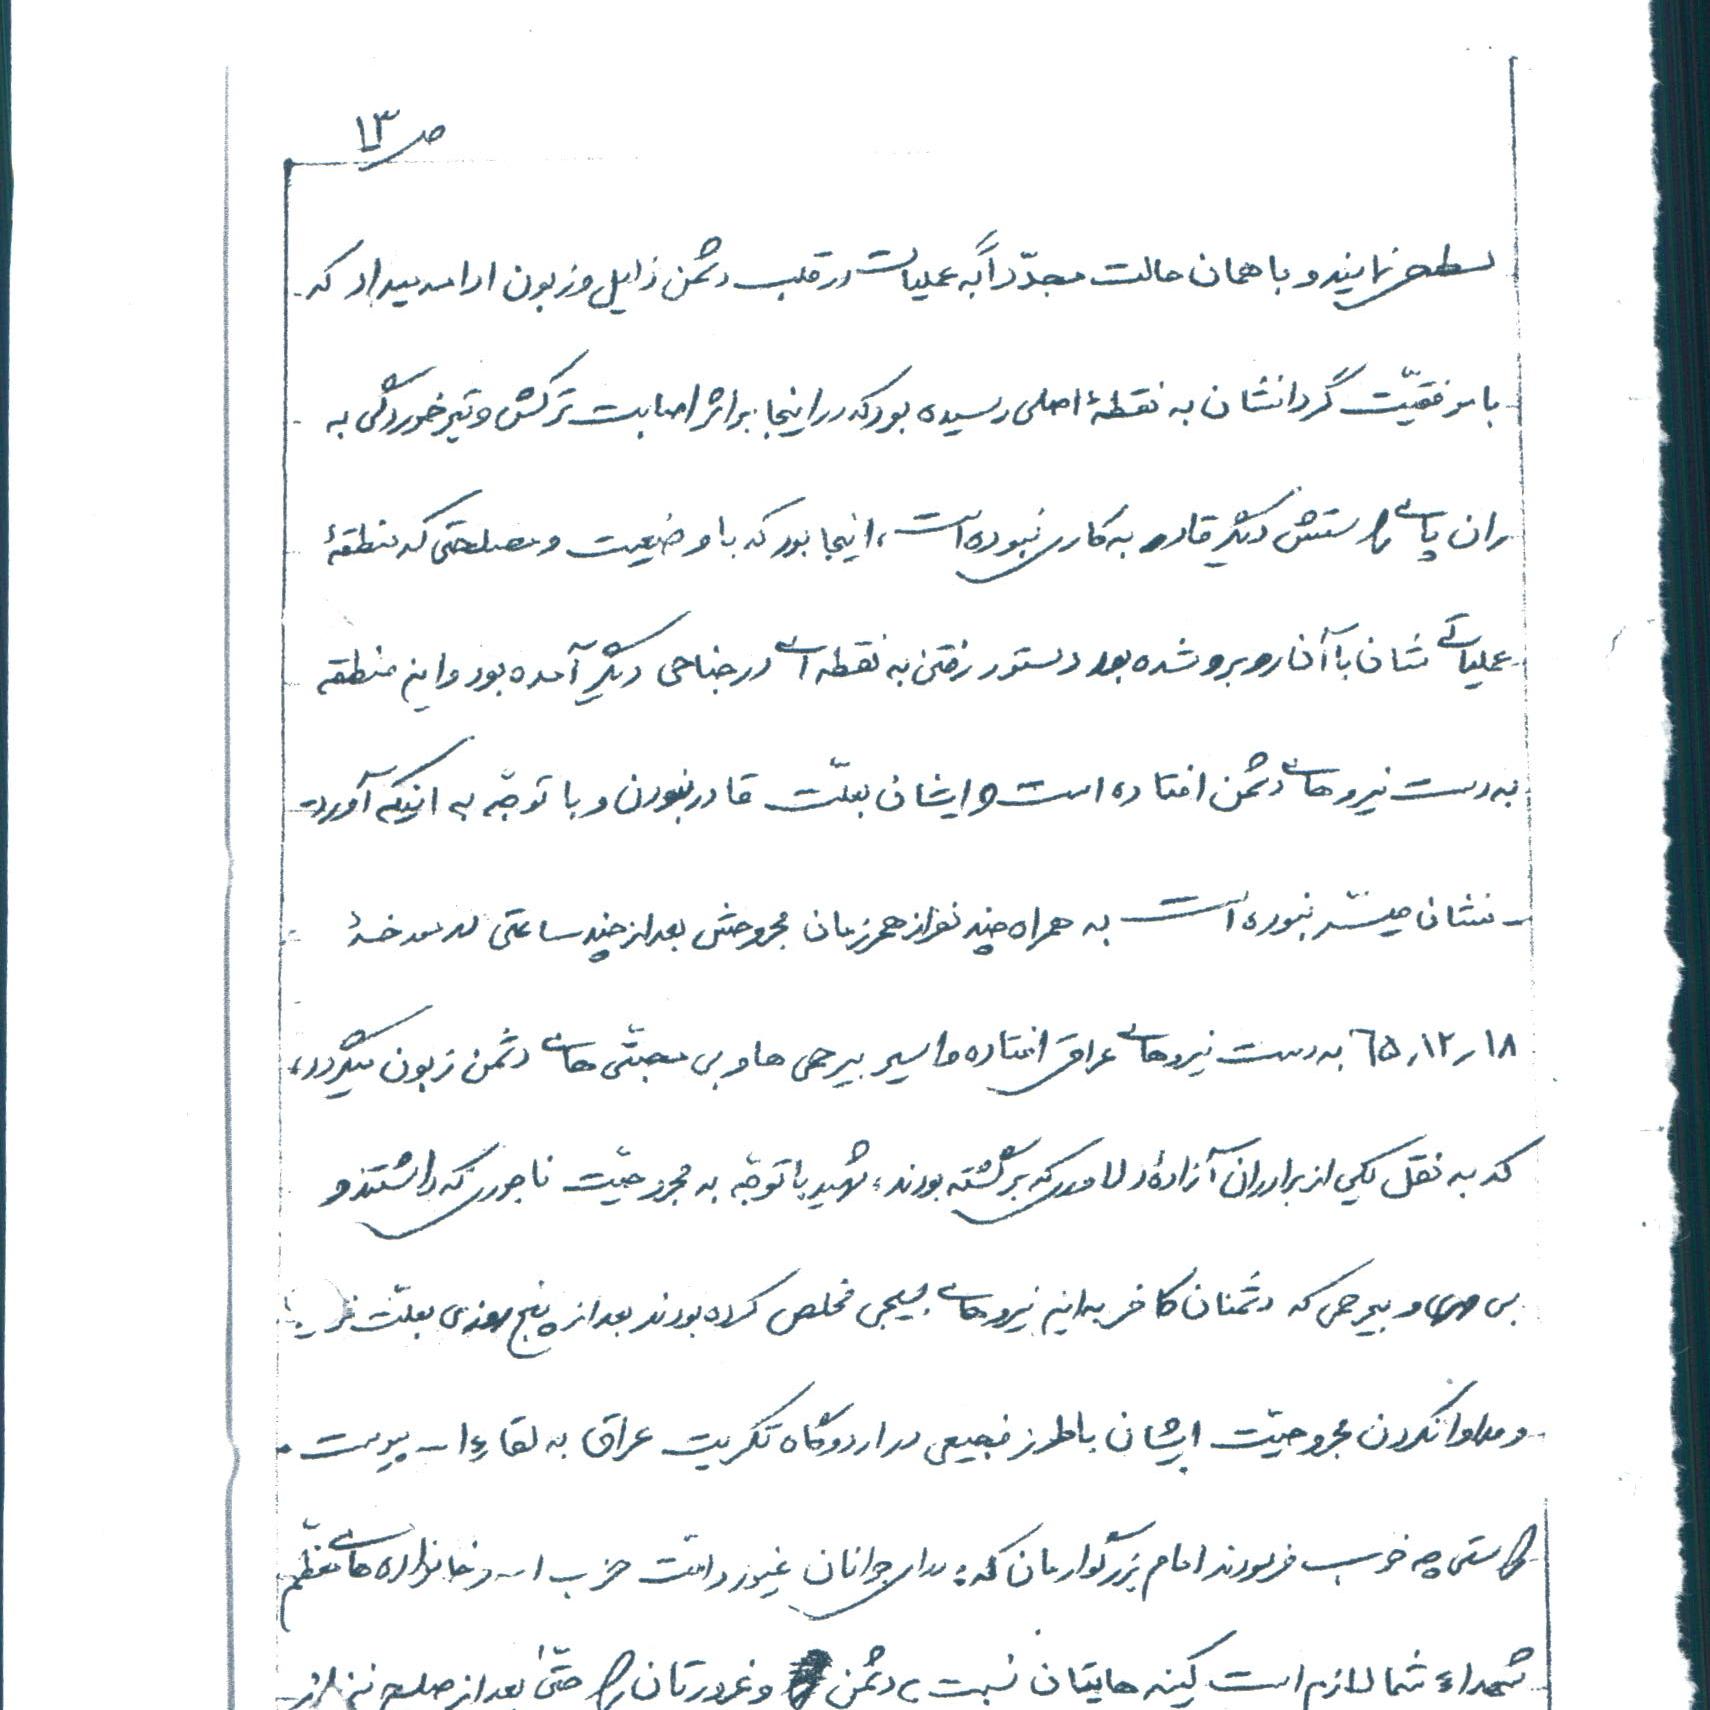 ص ۱۳
سطحی نمایند و با همان حالت مجدّداً به عملیات در قلب دشمن ذلیل و زبون ادامه میداد که
با موفقیّت گردانشان به نقطهٔ اصلی رسیده بود که در اینجا بر اثر اصابت ترکش و تیر خوردگی به
ران پای راستش دیگر قادر به کاری نبوده است، اینجا بود که با وضعیت و مصلحتی که منطقهٔ
عملیاتی شان با آن روبرو شده بود دستور رفتن به نقطه ای در جناحی دیگر آمده بود و این منطقه
به دست نیروهای دشمن افتاده است و ایشان بعلّت قادر نبودن و با توجّه به اینکه آوردن
نشان میسّر نبوده است به همراه چند نفر از همرزمان مجروحش بعد از چند ساعتی در مورخهٔ
۶۵٫۱۲٫۱۸ به دست نیروهای عراقی افتاده و اسیر بیرحمی ها و بی محبّتی های دشمن زبون میگردد،
که به نقل یکی از برادران آزادهٔ دلاوری که برگشته بودند، شهید با توجّه به مجروحیّت ناجوری که داشتند و
بی مهری و بیرحمی که دشمنان کافر به این نیروهای بسیجی مخلص کرده بودند بعد از پنج روزی بعلّت
و مداوا نکردن مجروحیّت ایشان با طرز فجیعی در اردوگاه تکریت عراق به لقاء ا... پیوست.
راستی چه خوب فرمودند امام بزرگوارمان که: برای جوانان غیور و امّت حزب ا... و خانواده های معظّم
شهداء شما لازم است کینه هایتان نسبت به دشمن و غرورتان را حتّیٰ بعد از صلح نیز از